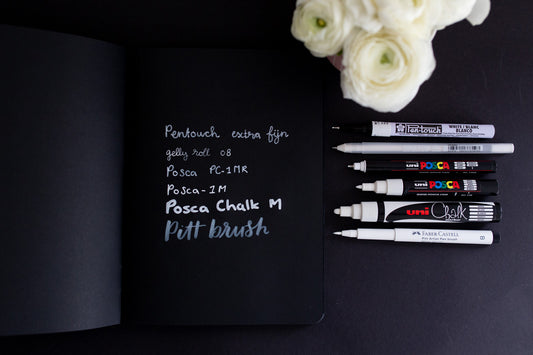 Pentouch extra fijn
gelly roll 08
Posca PC-1MR
Posca-1M
Posca Chalk M
Pitt brush
Pen-touch
WHITE/BLANC
BLANCO
uni POSCA
uni POSCA
uni Chalk
FABER-CASTELL
Pitt Artist Pen brush
B